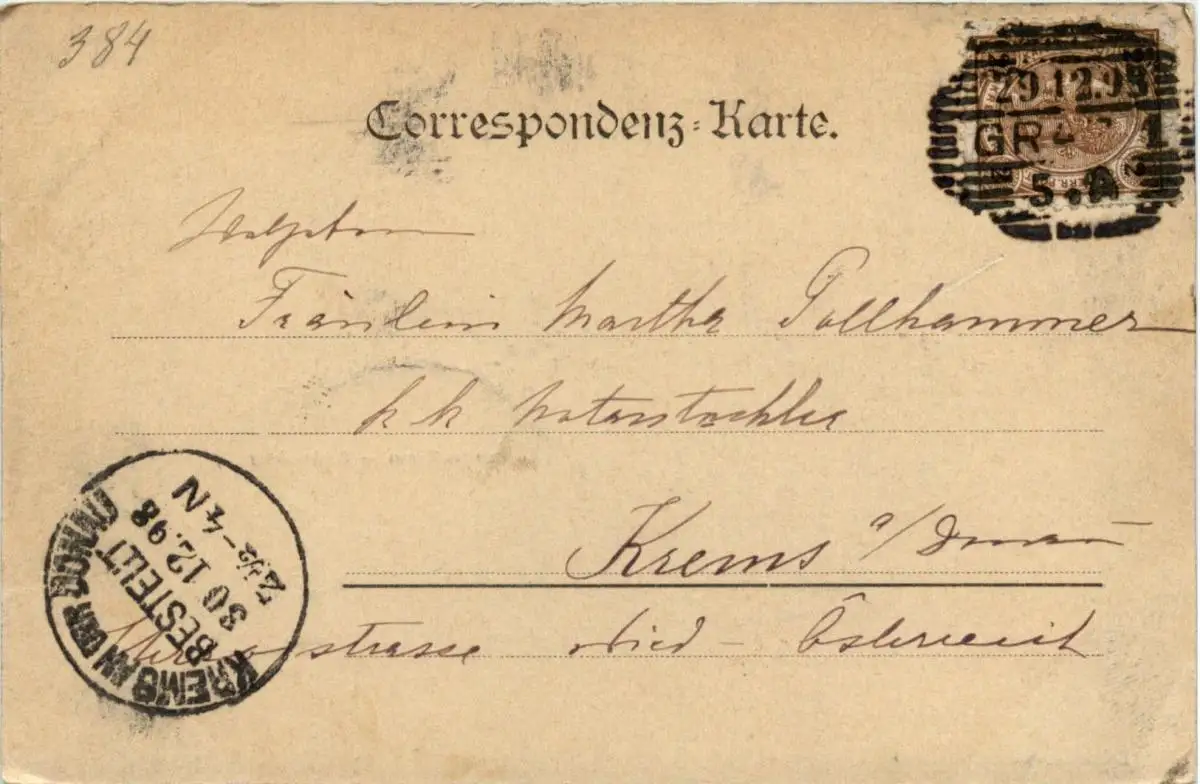 384
Correspondenz-Karte.
29.12.98
GRAZ 1
5. A
Fräulein Martha Pollhammer
k k Notarstochter
Krems a/Donau
strasse Nied - Österreich
KREMS AN DER DONAU
BESTELLT
30 12.98
2½-4 N